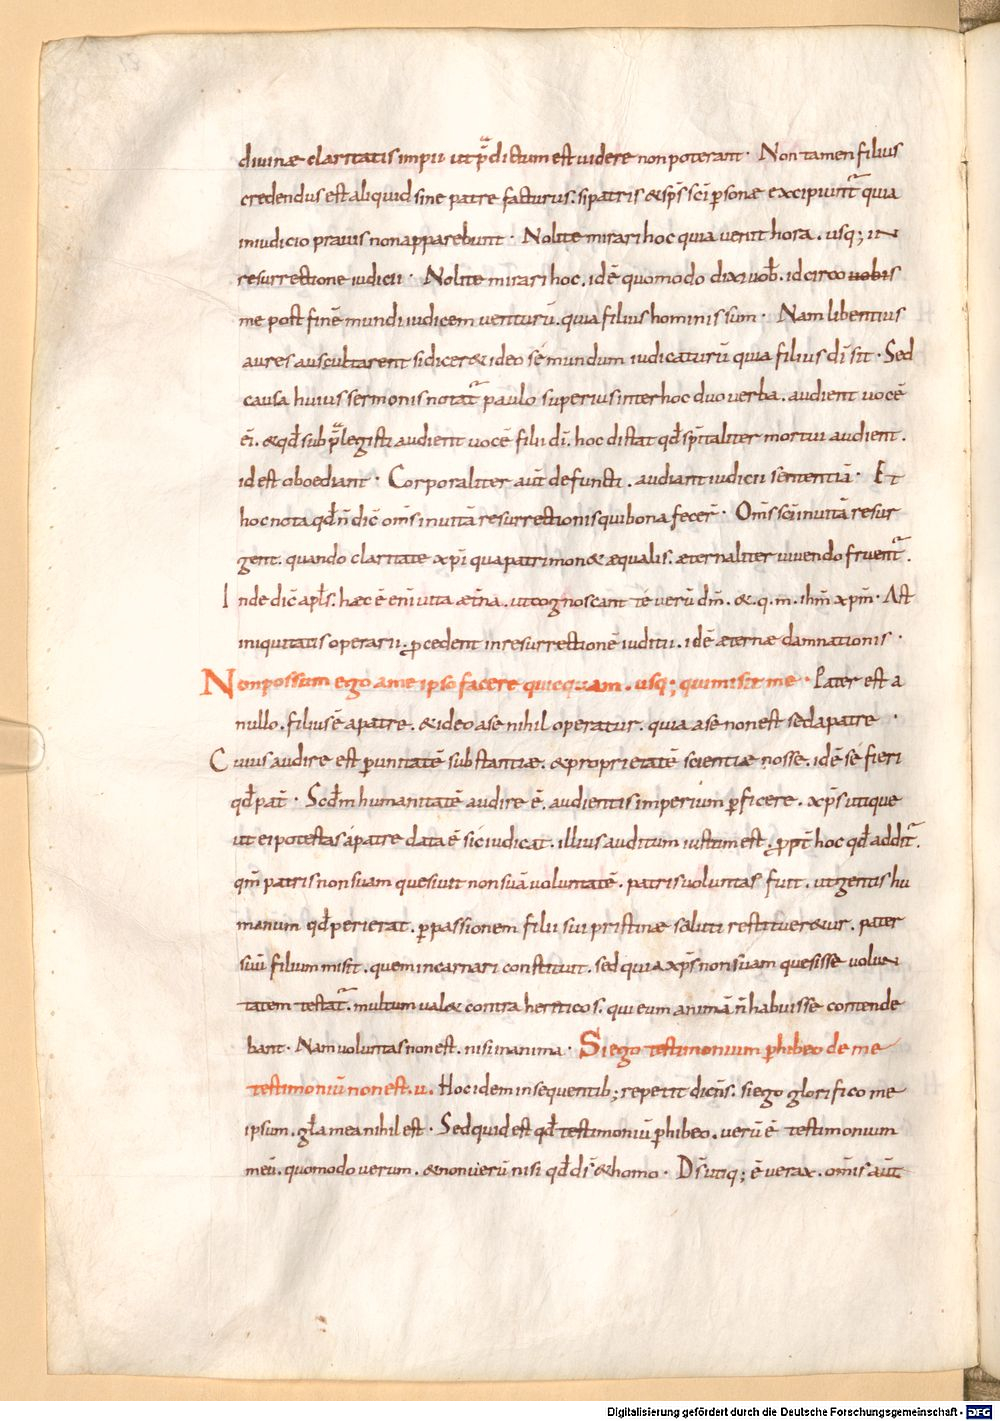 diuinæ claritatis impii ut p̄dictum est uidere non poterant · Non tamen filius
credendus est aliquid sine patre facturus. si patris & sp̄s sc̄i personæ excipiunt̄ quia
in iudicio prauis non apparebunt · Nolite mirari hoc quia uenit hora . usq; in
resurrectione iudicii · Nolite mirari hoc . idē quomodo dixi uob̄ . idcirco uobis
me post finē mundi iudicem uenturū . quia filius hominis sum · Nam libentius
aures auscultarent si dicer& ideo sē mundum iudicaturū quia filius dī sit · Sed
causa huius sermonis notat̄ paulo superius inter hoc duo uerba . audient uocē
ēi . & qđ sub p̄legisti audient uocē filii dī . hoc distat qđ sp̄italiter mortui audient .
id est oboediant · Corporaliter aūt defuncti . audiant iudicii sententiā · Et
hoc nota qđ n̄ dic̄ om̄s in uitā resurrectionis qui bona fecer̄ · Om̄s sc̄i in uitā resur
gent . quando claritate xp̄i qua patri mon& æqualis . æternaliter uiuendo fruent̄ .
Inde dic̄ apl̄s . hæc ē eni uita æt̄na . ut cognoscant te uerū dm̄ . & . q . m . ihm̄ xpm̄ · Ast
iniquitatis operarii . pcedent in resurrectionē iuditii . idē æternæ damnationis ·
Non possum ego a me ipso facere quicquam . usq; qui misit me · Pater est a
nullo . filius ē a patre . & ideo a se nihil operatur . quia a se non est sed a patre ·
Cuius audire est p unitatē substantiæ . & proprietatē scientiæ nosse . idē sē fieri
qđ pat̄ · Scđm humanitatē audire ē . audientis imperium pficere . xp̄s utique
ut ei potestas a patre data ē sic iudicat . illius auditum iustum est . ppt̄ hoc qđ addit̄ .
qm̄ patris non suam quesiuit non suā uoluntatē . patris uoluntas fuit . ut gentis hu
manum qđ perierat . p passionem filii sui pristinæ saluti restituer&ur . pater
suū filium misit . quem incarnari constituit . sed quia xp̄s non suam quesisse volun
tatem testat̄ . multum ual& contra hereticos . qui eum animā n̄ habuisse contende
bant · Nam uoluntas non est . nisi in anima · Si ego testimonium phibeo de me
testimoniū non est . u . Hoc idem in sequentib; repetit dicn̄s . si ego glorifico me
ipsum . gl̄a mea nihil est · Sed quid est qđ testimoniū phibeo . uerū ē testimonium
meū . quomodo uerum . & non uerū nisi qđ dī & homo · Ds̄ utiq; ē uerax . om̄is aūt
Digitalisierung gefördert durch die Deutsche Forschungsgemeinschaft - DFG